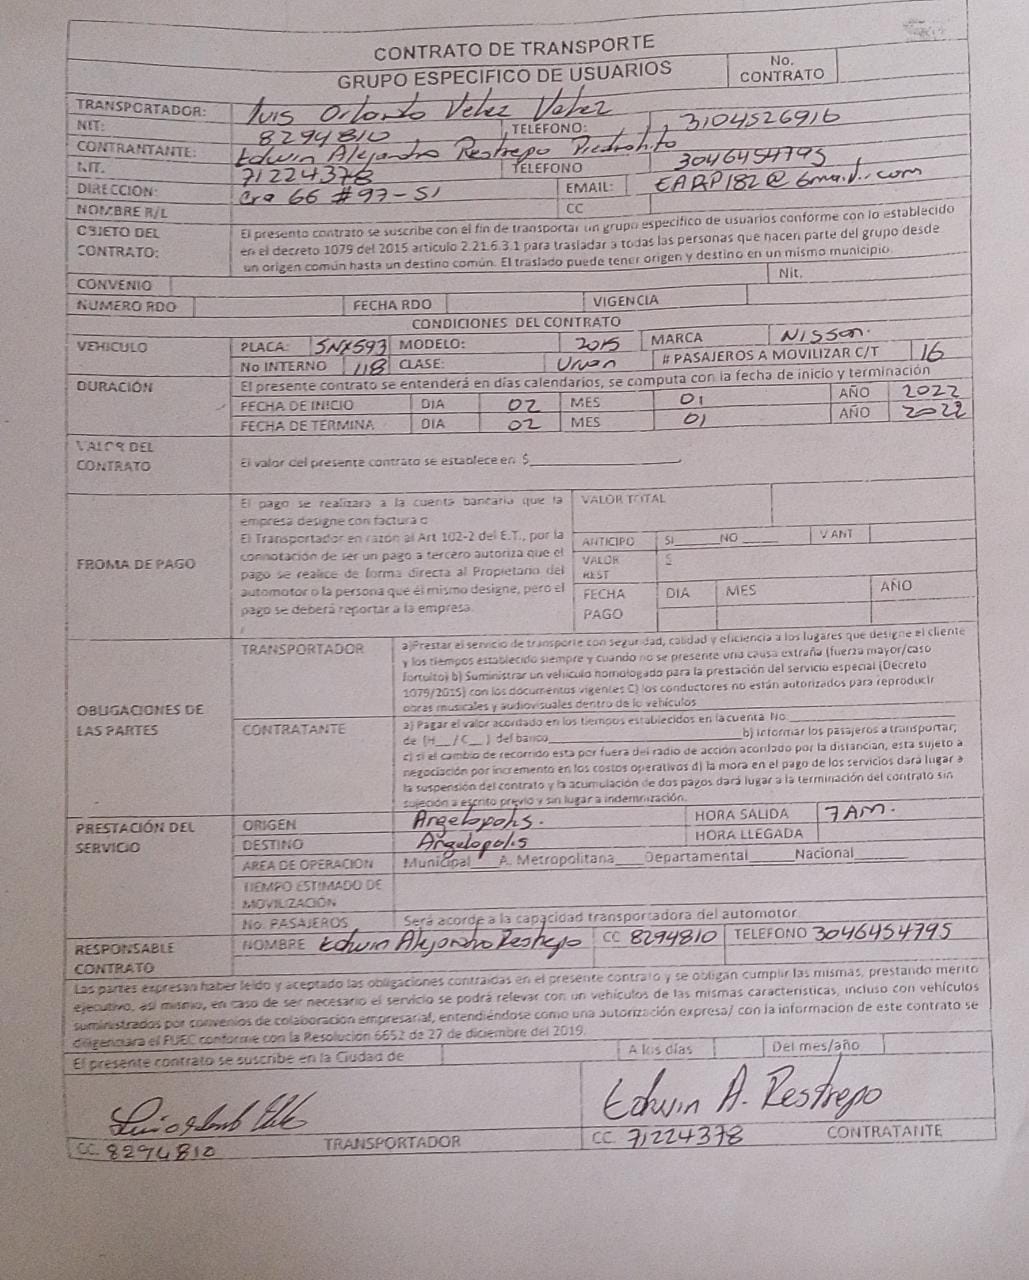 CONTRATO DE TRANSPORTE
GRUPO ESPECIFICO DE USUARIOS
No. CONTRATO
TRANSPORTADOR: Luis Orlando Velez Velez
NIT: 8294810 TELEFONO: 3104526916
CONTRANTANTE: Edwin Alejandro Restrepo Piedrahito
NIT. 71224378 TELEFONO 3046454795
DIRECCION: Cra 66 #97-51 EMAIL: EARP182@Gmail.com
NOMBRE R/L CC
OBJETO DEL CONTRATO: El presento contrato se suscribe con el fin de transportar un grupo especifico de usuarios conforme con lo establecido
en el decreto 1079 del 2015 articulo 2.21.6.3.1 para trasladar a todas las personas que hacen parte del grupo desde
un origen común hasta un destino común. El traslado puede tener origen y destino en un mismo municipio.
CONVENIO Nit.
NUMERO RDO FECHA RDO VIGENCIA
CONDICIONES DEL CONTRATO
VEHICULO PLACA: SNX593 MODELO: 2015 MARCA Nissan.
No INTERNO 118 CLASE: Urvan # PASAJEROS A MOVILIZAR C/T 16
DURACIÓN El presente contrato se entenderá en días calendarios, se computa con la fecha de inicio y terminación
FECHA DE INICIO DIA 02 MES 01 AÑO 2022
FECHA DE TERMINA DIA 02 MES 01 AÑO 2022
VALOR DEL CONTRATO El valor del presente contrato se establece en $
FROMA DE PAGO
El pago se realizara a la cuenta bancaria que la
empresa designe con factura o
El Transportador en razón al Art 102-2 del E.T., por la
connotación de ser un pago a tercero autoriza que el
pago se realice de forma directa al Propietario del
automotor o la persona que él mismo designe, pero el
pago se deberá reportar a la empresa.
VALOR TOTAL
ANTICIPO SI NO V ANT
VALOR REST $
FECHA PAGO DIA MES AÑO
OBLIGACIONES DE LAS PARTES
TRANSPORTADOR a)Prestar el servicio de transporte con seguridad, calidad y eficiencia a los lugares que designe el cliente
y los tiempos establecido siempre y cuando no se presente una causa extraña (fuerza mayor/caso
fortuito) b) Suministrar un vehículo homologado para la prestación del servicio especial (Decreto
1079/2015) con los documentos vigentes C) los conductores no están autorizados para reproducir
obras musicales y audiovisuales dentro de lo vehículos
CONTRATANTE a) Pagar el valor acordado en los tiempos establecidos en la cuenta No.
de (H__/C__) del banco b) informar los pasajeros a transportar;
c) si el cambio de recorrido esta por fuera del radio de acción acordado por la distancian, esta sujeto a
negociación por incremento en los costos operativos d) la mora en el pago de los servicios dará lugar a
la suspensión del contrato y la acumulación de dos pagos dará lugar a la terminación del contrato sin
sujeción a escrito previo y sin lugar a indemnización.
PRESTACIÓN DEL SERVICIO
ORIGEN Angelopolis. HORA SALIDA 7AM.
DESTINO Angelopolis HORA LLEGADA
AREA DE OPERACION Municipal A. Metropolitana Departamental Nacional
TIEMPO ESTIMADO DE MOVILIZACIÓN
No. PASAJEROS Será acorde a la capacidad transportadora del automotor
RESPONSABLE CONTRATO NOMBRE Edwin Alejandro Restrepo CC 8294810 TELEFONO 3046454795
Las partes expresan haber leído y aceptado las obligaciones contraídas en el presente contrato y se obligan cumplir las mismas, prestando merito
ejecutivo, así mismo, en caso de ser necesario el servicio se podrá relevar con un vehículos de las mismas características, incluso con vehículos
suministrados por convenios de colaboración empresarial, entendiéndose como una autorización expresa/ con la informacion de este contrato se
diligenciara el FUEC conforme con la Resolucion 6652 de 27 de diciembre del 2019.
El presente contrato se suscribe en la Ciudad de A los días Del mes/año
Edwin A. Restrepo
CC. 8294810 TRANSPORTADOR
CC. 71224378 CONTRATANTE